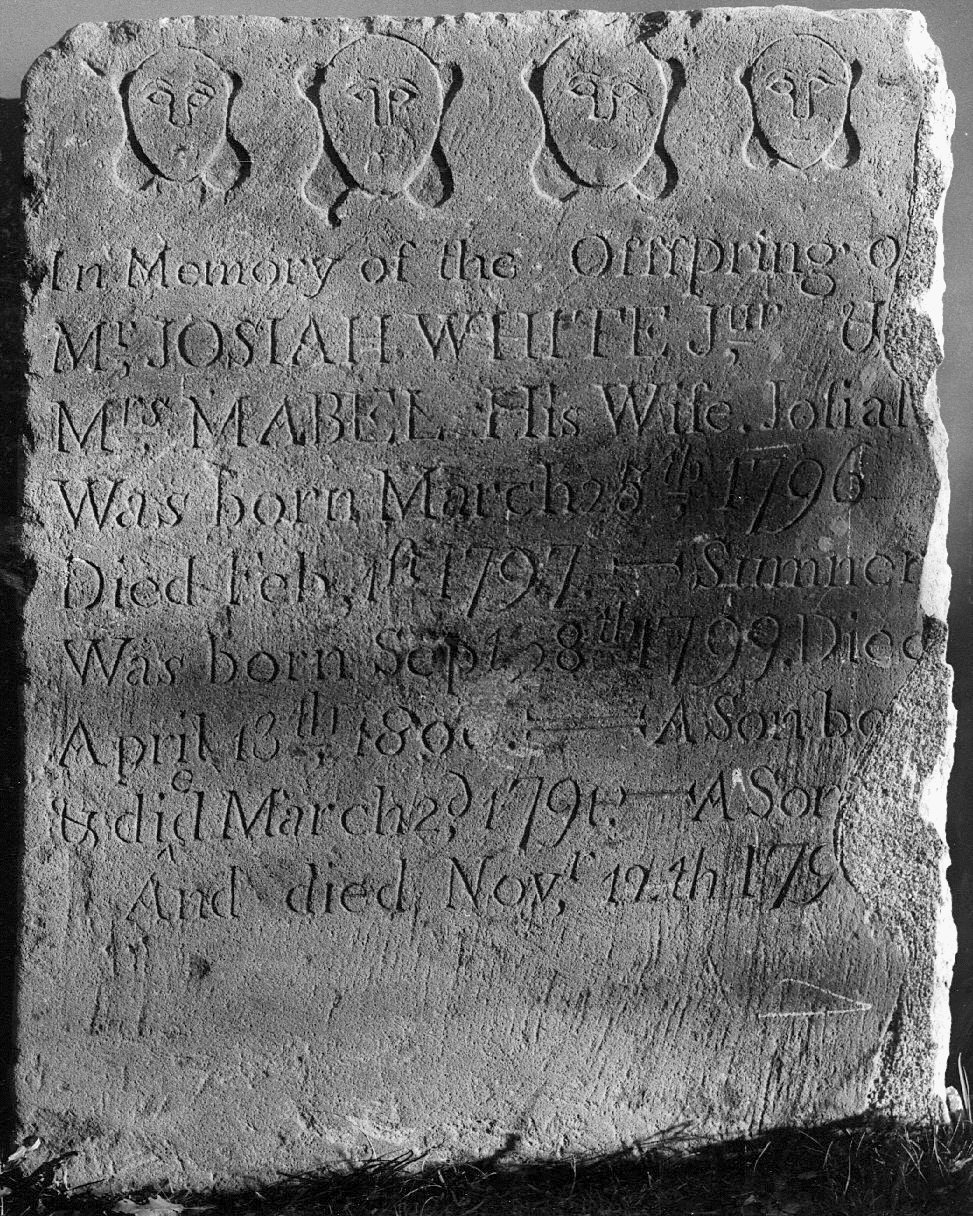 In Memory of the Offſpring o
Mr, JOSIAH WHITE Jur, &
Mrs. MABEL His Wife. Joſiah
Was born March 25th, 1796
Died Feb, 1ſt 1797. — Sumner
Was born Sept, 28th 1799. Died
April 18th, 180 — A Son bo
& died March 2d, 1791. — A Son
And died Novr, 12.th 179